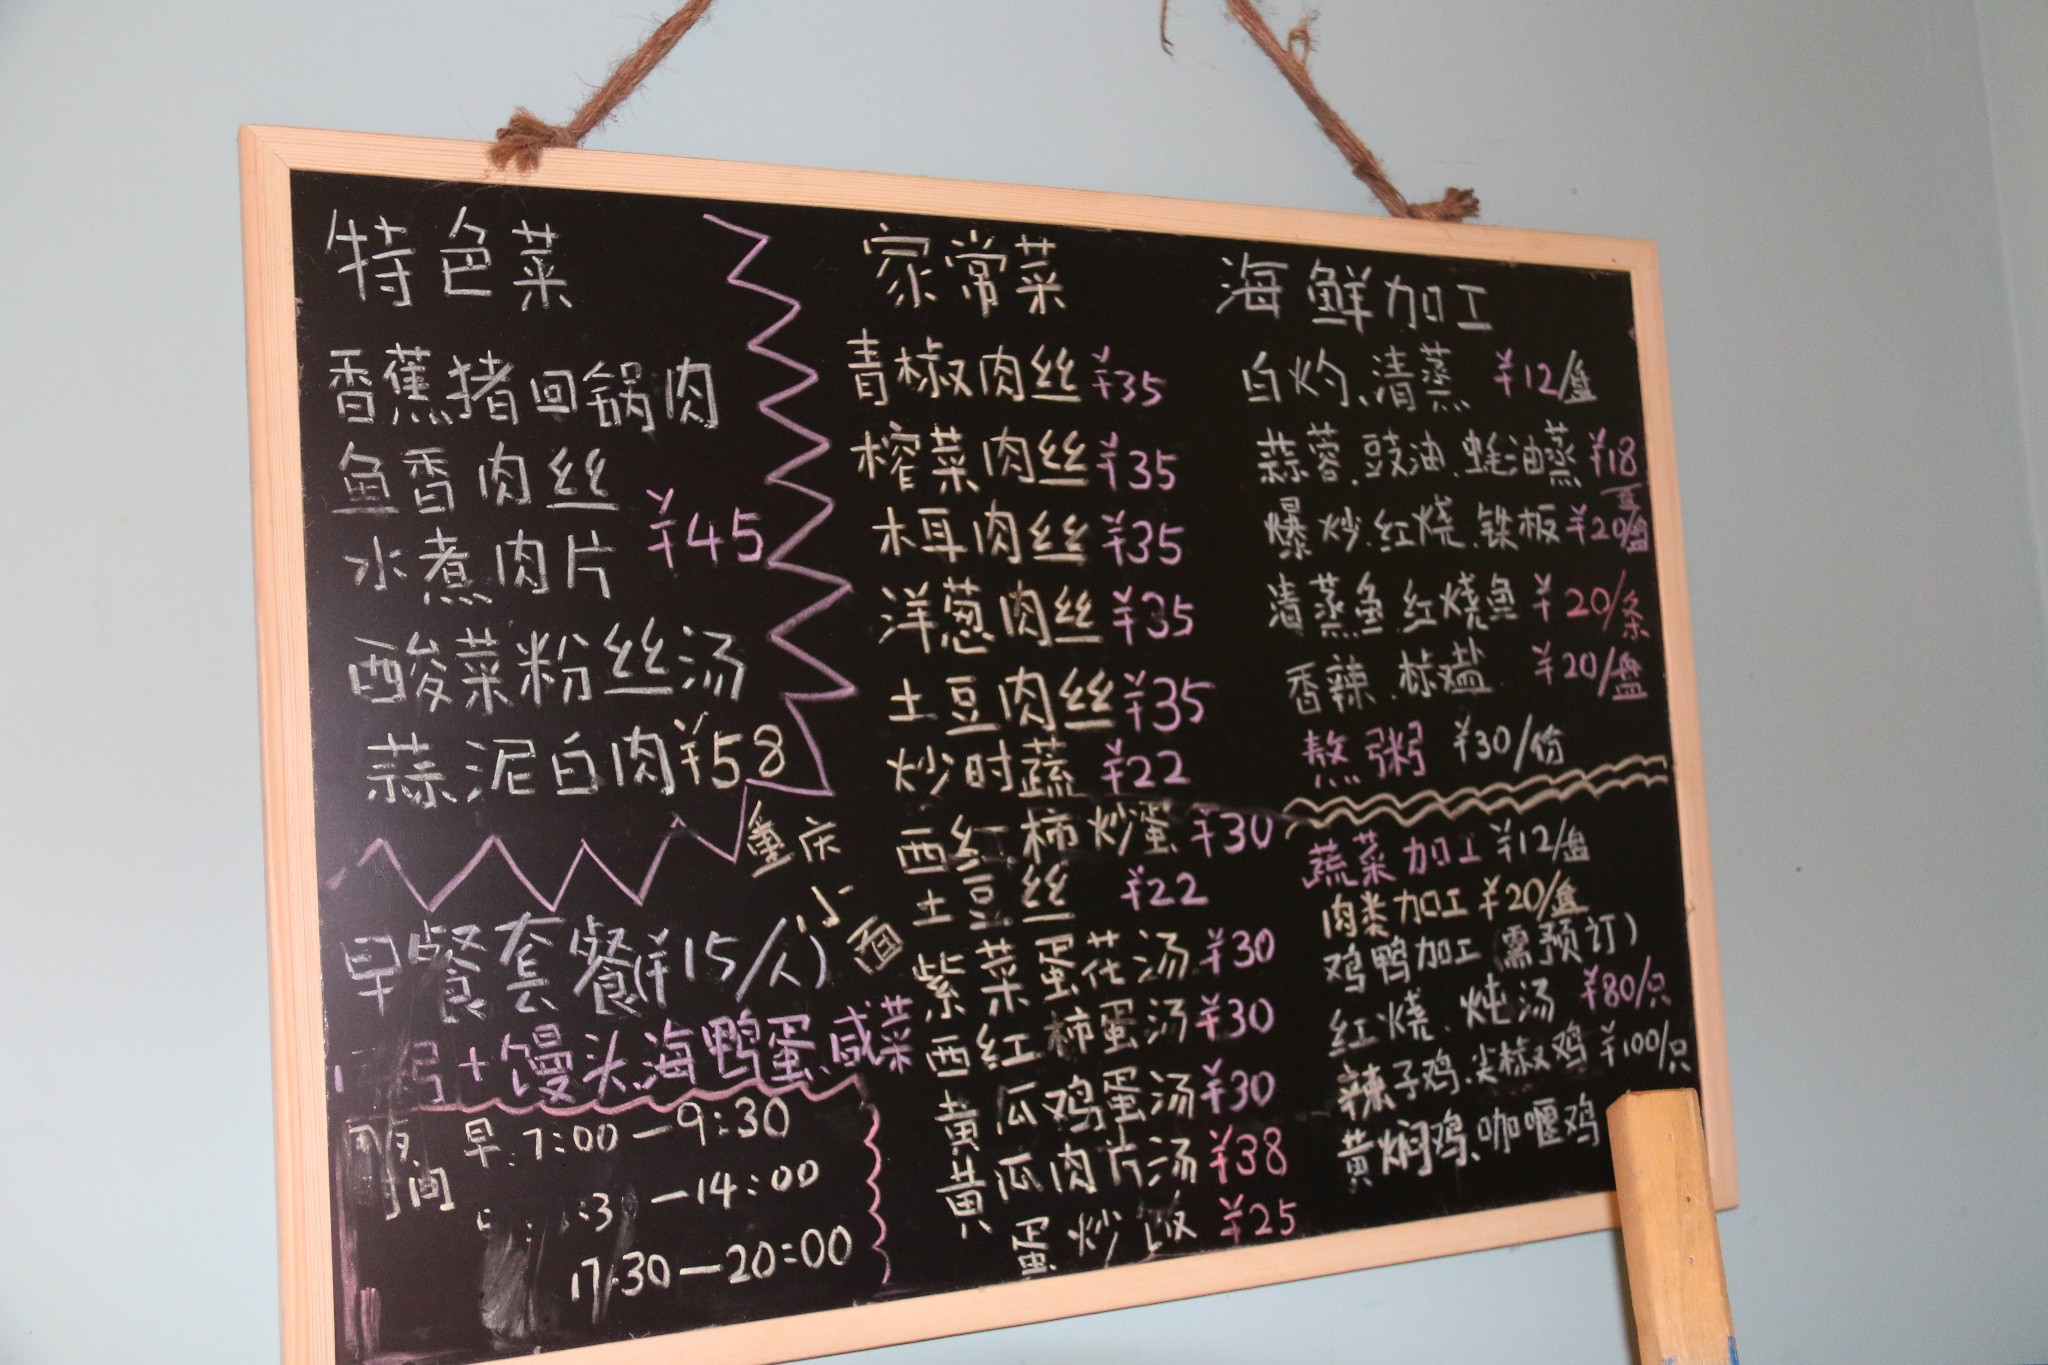 特色菜
香蕉猪回锅肉
鱼香肉丝
水煮肉片 ¥45
酸菜粉丝汤
蒜泥白肉 ¥58
重庆
小
面
早餐套餐(¥15/人)
+馒头、海鸭蛋、咸菜
时间
早:7:00—9:30
—14:00
17:30—20:00
家常菜
青椒肉丝 ¥35
榨菜肉丝 ¥35
木耳肉丝 ¥35
洋葱肉丝 ¥35
土豆肉丝 ¥35
炒时蔬 ¥22
西红柿炒蛋 ¥30
土豆丝 ¥22
紫菜蛋花汤 ¥30
西红柿蛋汤 ¥30
黄瓜鸡蛋汤 ¥30
黄瓜肉片汤 ¥38
蛋炒饭 ¥25
海鲜加工
白灼、清蒸 ¥12/盘
蒜蓉、豉油、蚝油蒸 ¥18
爆炒、红烧、铁板 ¥20/盘
清蒸鱼、红烧鱼 ¥20/条
香辣、椒盐 ¥20/盘
熬粥 ¥30/份
蔬菜加工 ¥12/盘
肉类加工 ¥20/盘
鸡鸭加工(需预订)
红烧、炖汤 ¥80/只
辣子鸡、尖椒鸡 ¥100/只
黄焖鸡、咖喱鸡